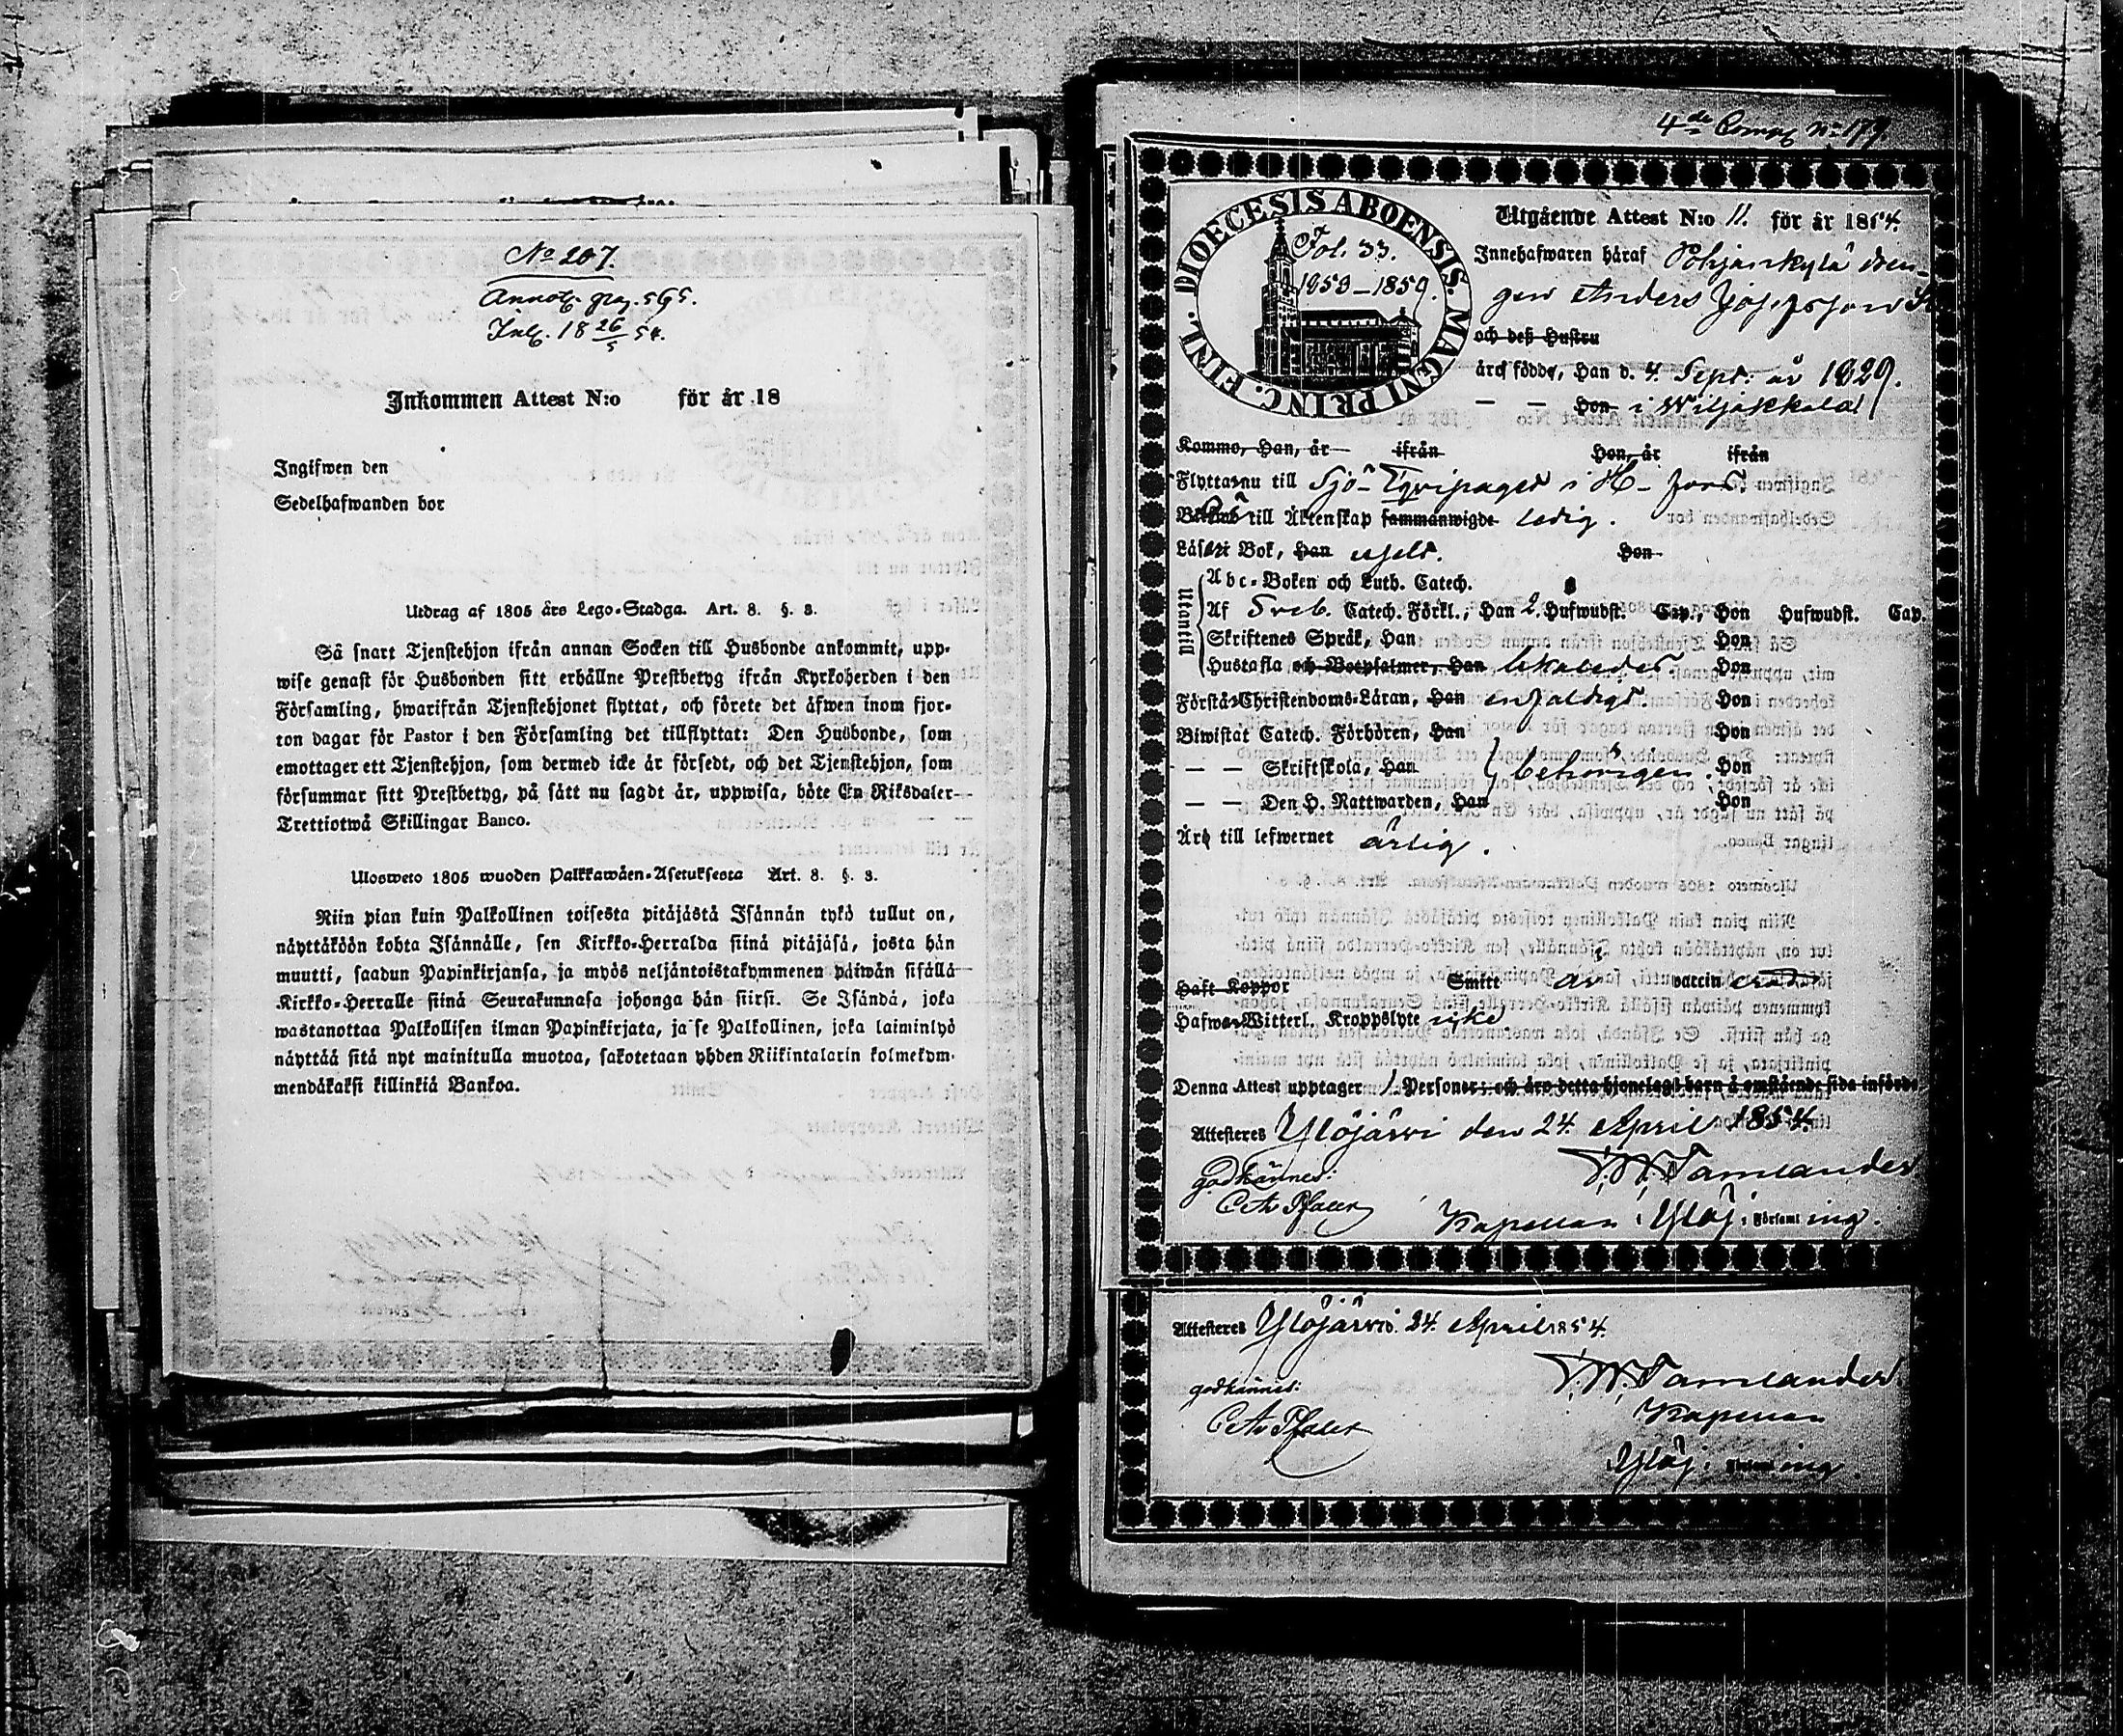 No 207.
Annot. pag. 595.
Inl. 18 26/5 54.
Inkommen Attest N:o för år 18
Ingifwen den
Sedelhafwanden bor
Utdrag af 1805 års Lego-Stadga. Art. 8. §. 3.
Så snart Tjenstehjon ifrån annan Socken till Husbonde ankommit, upp-
wise genast för Husbonden sitt erhållne Prestbetyg ifrån Kyrkoherden i den
Församling, hwarifrån Tjenstehjonet flyttat, och förete det äfwen inom fjor-
ton dagar för Pastor i den Församling det tillflyttat: Den Husbonde, som
emottager ett Tjenstehjon, som dermed icke är försedt, och det Tjenstehjon, som
försummar sitt Prestbetyg, på sätt nu sagdt är, uppwisa, böte En Riksdaler
Trettiotwå Skillingar Banco.
Ulosweto 1805 wuoden Palkkawäen-Asetuksesta Art. 8. §. 3.
Niin pian kuin Palkollinen toisesta pitäjästä Isännän tykö tullut on,
näyttäköön kohta Isännälle, sen Kirkko-Herralda siinä pitäjäsä, josta hän
muutti, saadun Papinkirjansa, ja myös neljäntoistakymmenen päiwän sisällä
Kirkko-Herralle siinä Seurakunnasa johonga hän siirsi. Se Isändä, joka
wastanottaa Palkollisen ilman Papinkirjata, ja se Palkollinen, joka laiminlyö
näyttää sitä nyt mainitulla muotoa, sakotetaan yhden Riikintalarin kolmekym-
mendäkaksi killinkiä Bankoa.
4de Comp No 179
DIOECESIS ABOENSIS. MAGNI PRINC. FINL.
Fol. 33.
1853-1859.
Utgående Attest N:o 11. för år 1854.
Innehafwaren häraf Pohjankylä dren-
gen Anders
och deß Hustru
äro födde, Han d. 4. Sept: år 1829.
— — Hon i Wiljakkala
Kommo, Han, år ifrån Hon, år ifrån
Flytta nu till Sjö-Equipaget i H-fors.
till Äktenskap sammanwigde ledig.
Läser i Bok, Han Hon
Utantill
Abc-Boken och Luth. Catech.
Af Sveb. Catech. Förkl., Han 2. Hufwudst. Cap., Hon Hufwudst. Cap.
Skriftenes Språk, Han Hon
Hustafla och Botpsalmer, Han Hon
Förstår Christendoms-Läran, Han enfaldigt. Hon
Biwistat Catech. Förhören, Han Hon
— — Skriftskola, Han behörigen. Hon
— — Den H. Nattwarden, Han Hon
Äro till lefwernet ärlig.
Haft Koppor Smitt vaccin
Hafwa Witterl. Kroppslyte icke
Denna Attest upptager 1 Personer; och äro detta hjonelags barn å omstående sida införde
Attesteres Ylöjärwi den 24. April 1854.
godkännes: Tamlander
Kapellan i Ylöj: Församl ing.
Attesteres Ylöjärwi. 24. April 1854.
Tamlander
godkännes:
Kapellan
Ylöj: ing